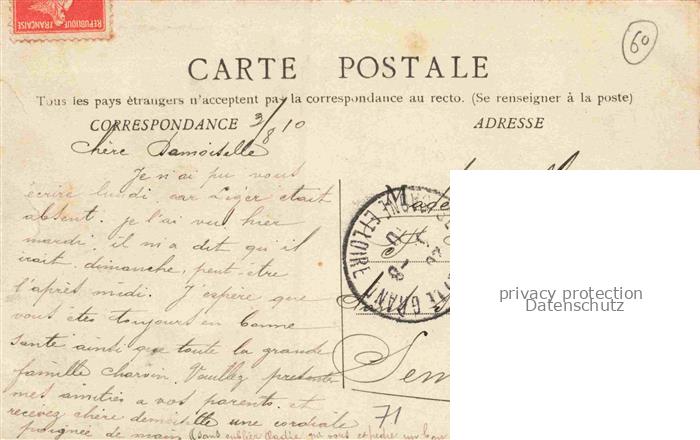 REPUBLIQUE FRANÇAISE
60
CARTE POSTALE
Tous les pays étrangers n'acceptent pas la correspondance au recto. (Se renseigner à la poste)
CORRESPONDANCE 3/8/10
ADRESSE
Chère Damoiselle
Je n'ai pu vous
écrire lundi, car Liger était
absent. Je l'ai vu hier
mardi, il m'a dit qu'il
irait dimanche, peut-être
l'après midi. J'espère que
vous êtes toujours en bonne
santé ainsi que toute la grande
famille Charvin. Veuillez présenter
mes amitiés a vos parents. et
recevez chère demoiselle une cordiale
poignée de main (sans oublier
Made
ET LOIRE
Sem
71
privacy protection
Datenschutz